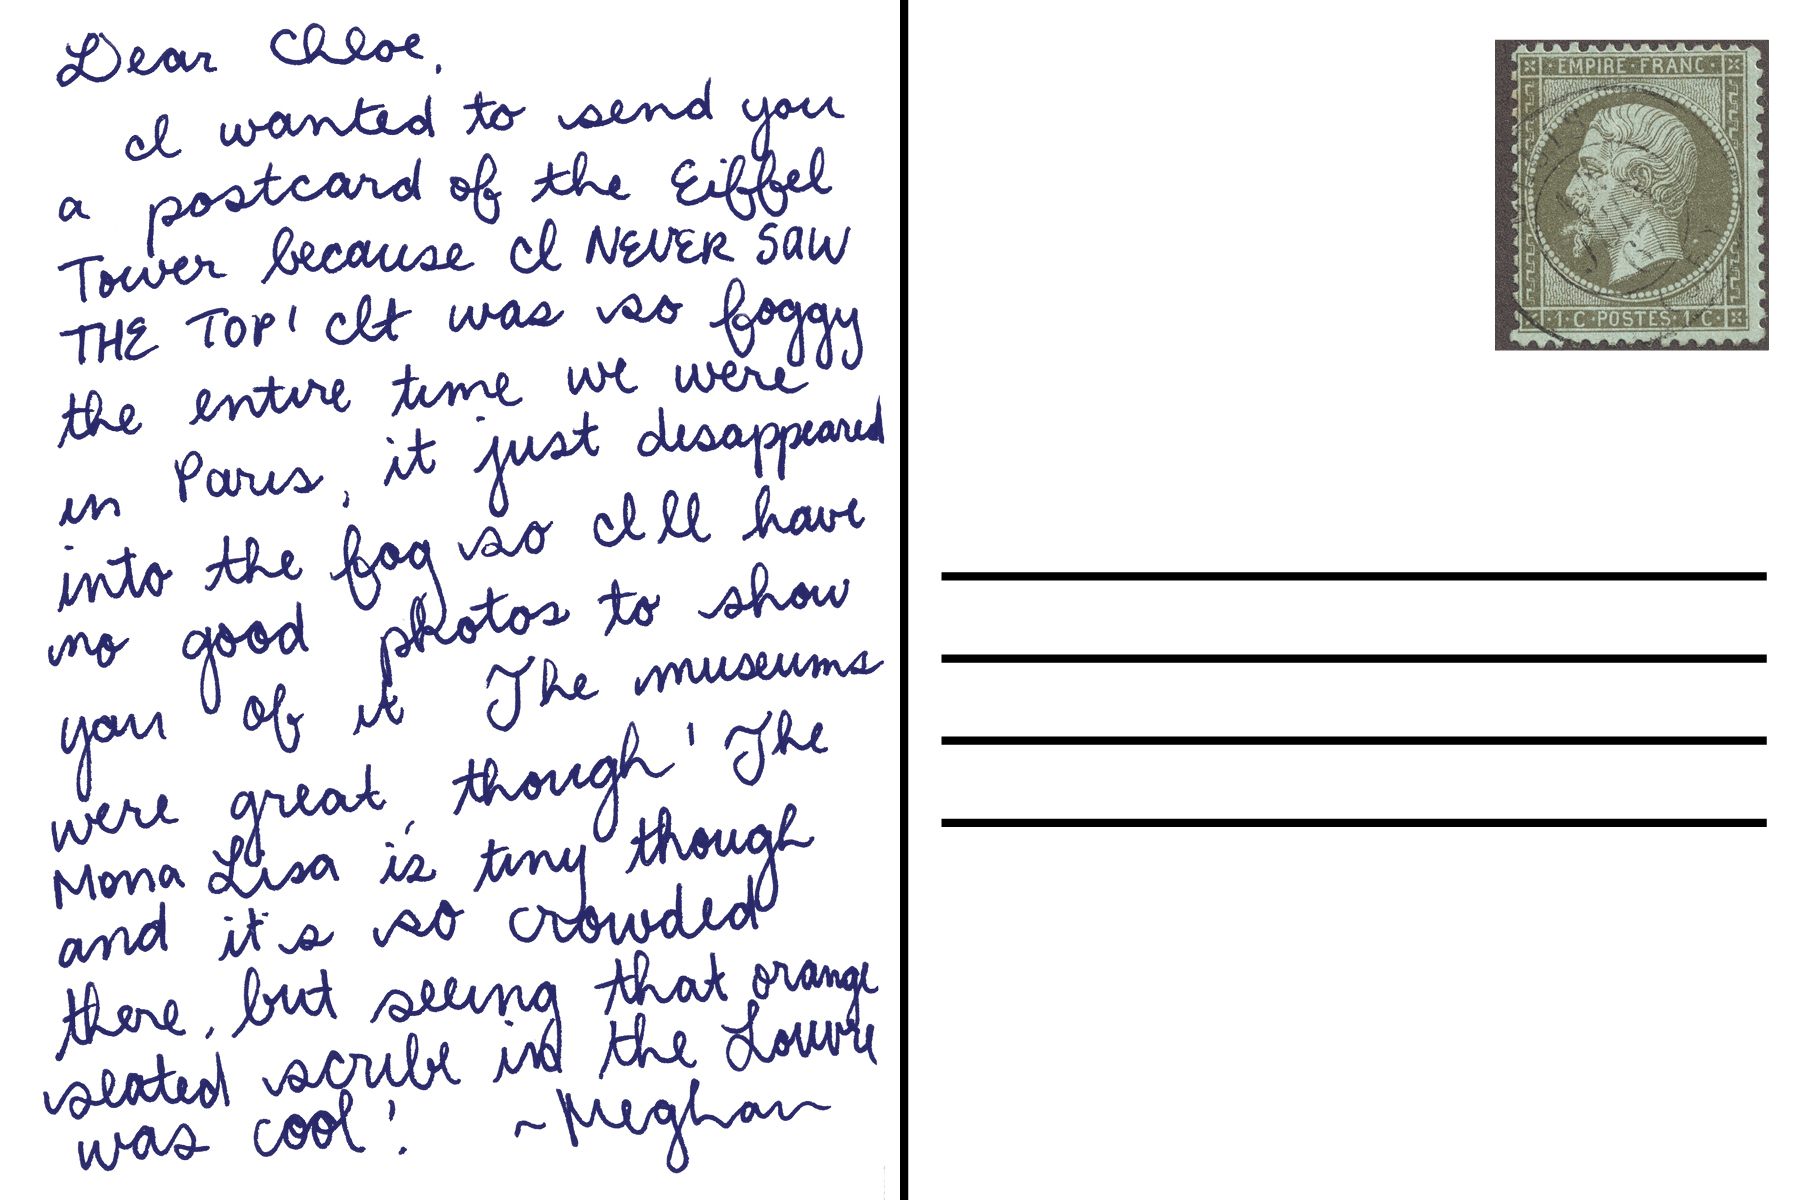 Dear Chloe,
I wanted to send you
a postcard of the Eiffel
Tower because I NEVER SAW
THE TOP! It was so foggy
the entire time we were
in Paris, it just disappeared
into the fog so I'll have
no good photos to show
you of it The museums
were great, though! The
Mona Lisa is tiny though
and it's so crowded
there, but seeing that orange
seated scribe in the Louvre
was cool!
~Meghan
EMPIRE FRANC
1 C POSTES 1 C